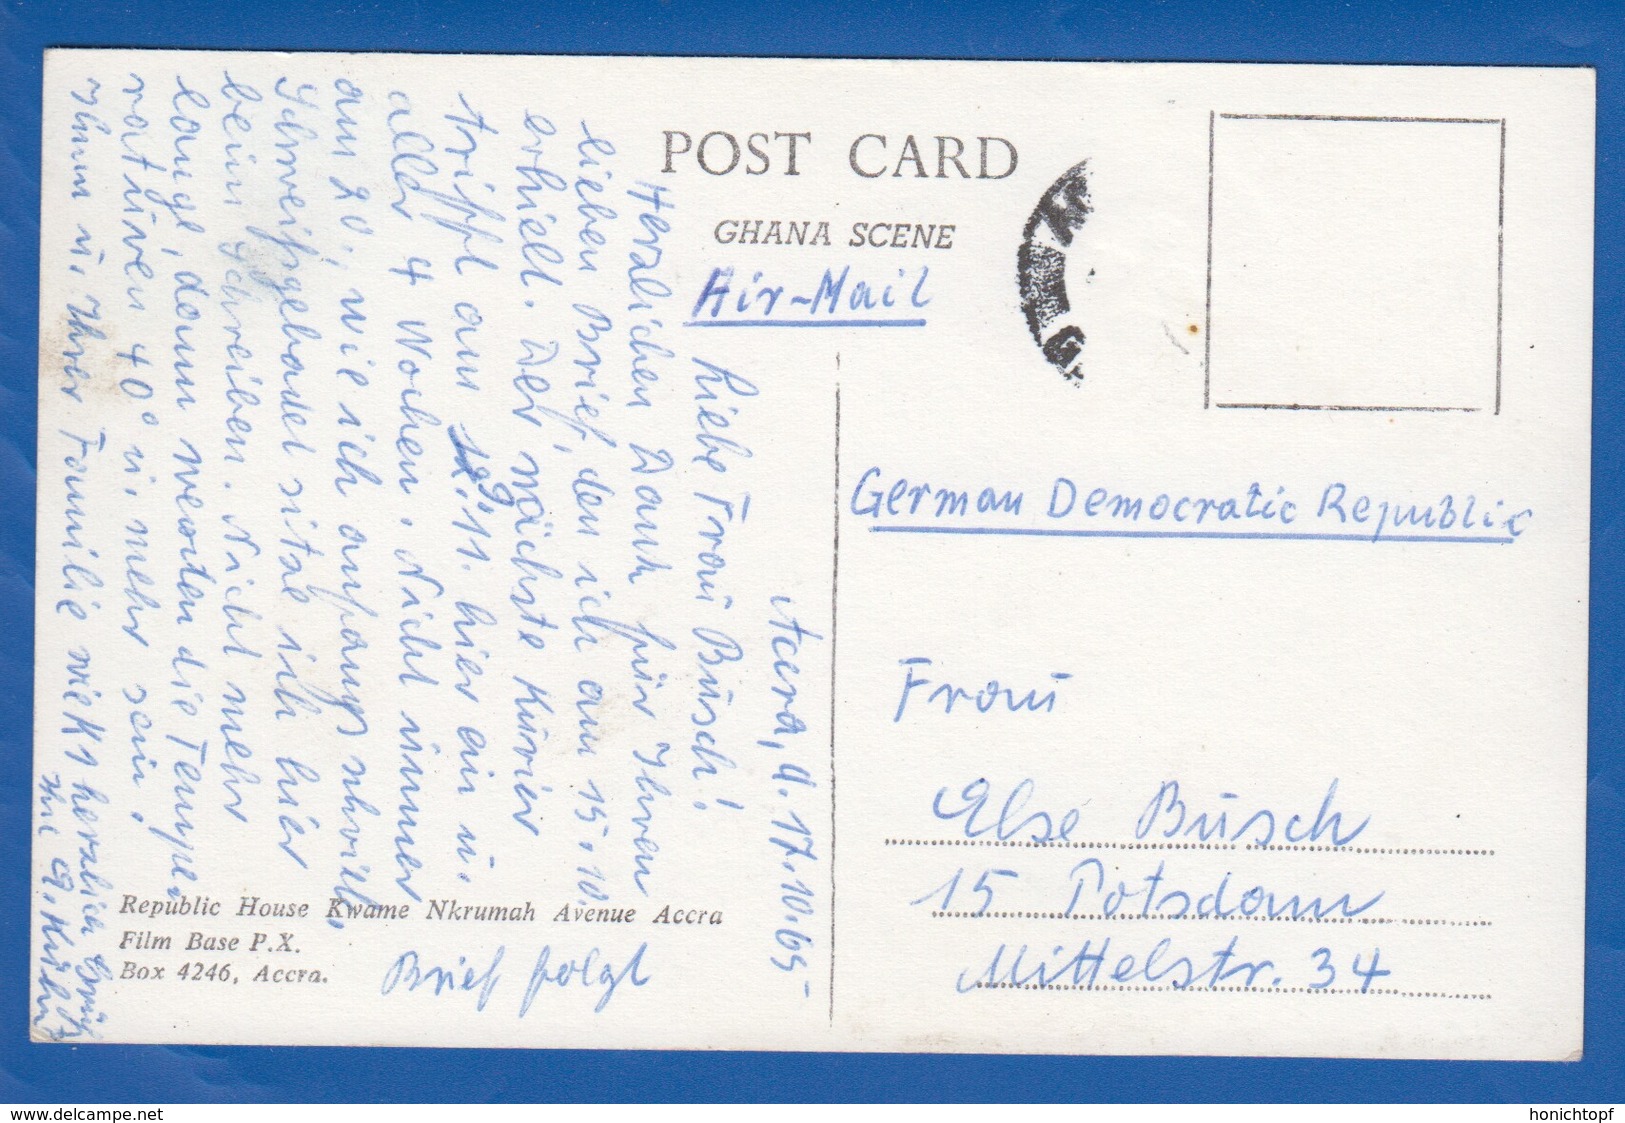 POST CARD
GHANA SCENE
Air-Mail
Accra, d. 17.10.65
Liebe Frau Busch!
Herzlichen Dank für Ihren
lieben Brief, den ich am 15.10.
erhielt. Der nächste Kurier
trifft am 19.11. hier ein u.
alle 4 Wochen. Nicht immer
am 20., wie ich anfangs schrieb.
Schweißgebadet sitze ich hier
beim Schreiben. Nicht mehr
lange, dann werden die Tempe-
raturen 40° u. mehr sein!
Ihnen u. Ihrer Familie herzlich
Ihre
Brief folgt
German Democratic Republic
Frau
Else Busch
15 Potsdam
Mittelstr. 34
Republic House Kwame Nkrumah Avenue Accra
Film Base P.X.
Box 4246, Accra.
www.delcampe.net
honichtopf